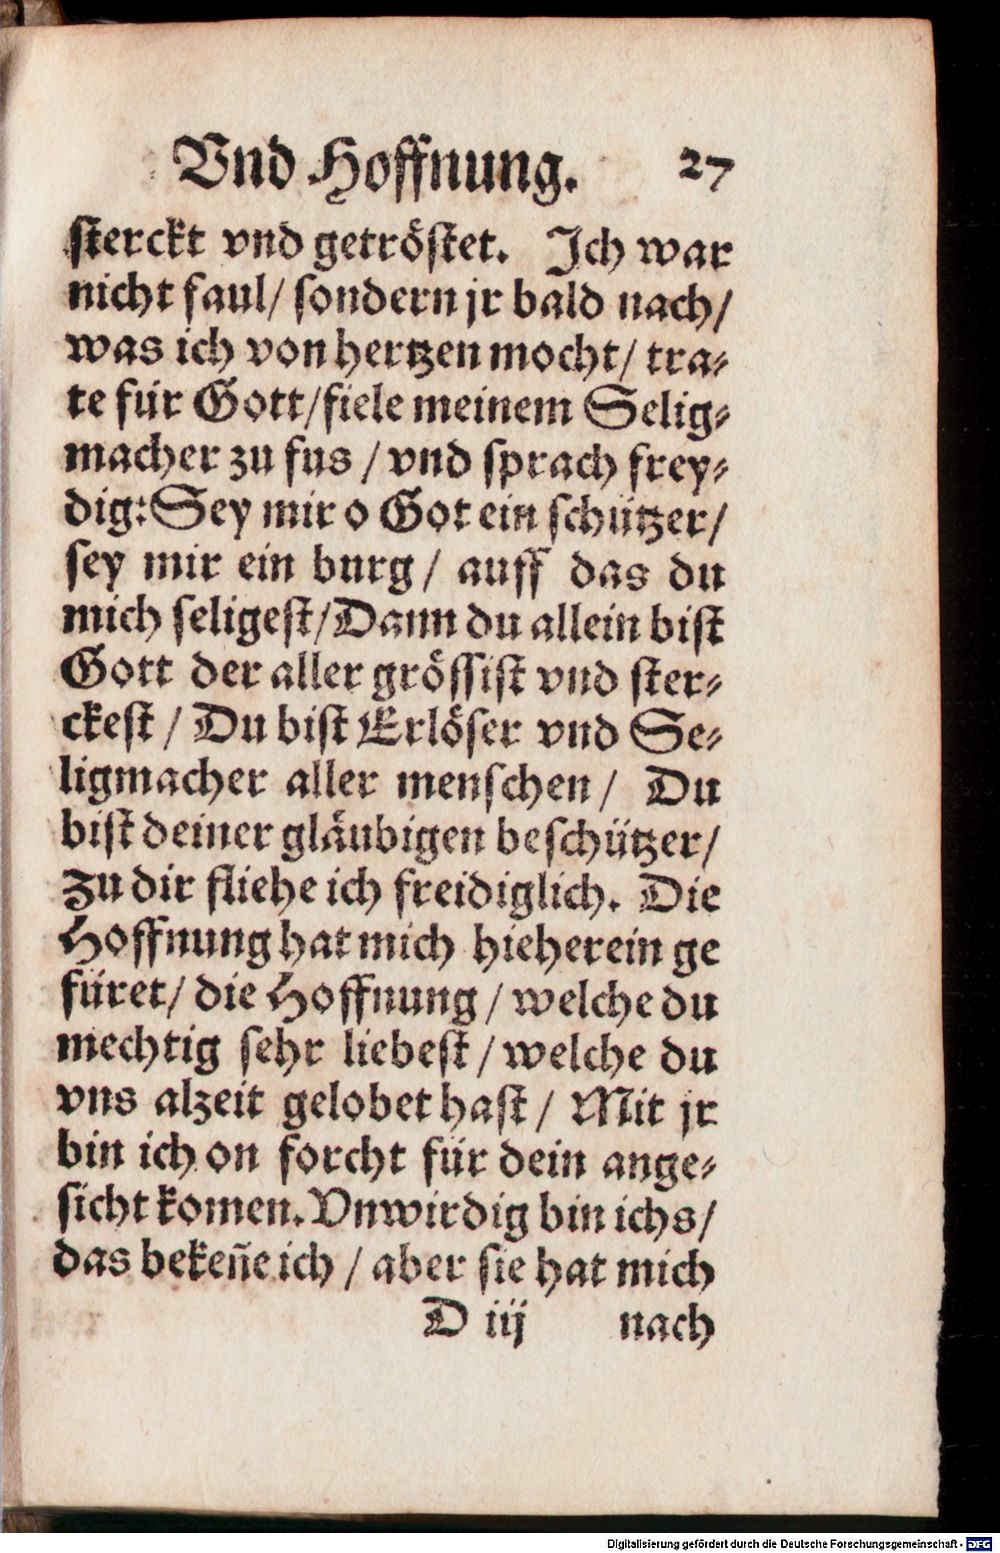 Vnd Hoffnung. 27
sterckt vnd getröstet. Ich war
nicht faul/ sondern jr bald nach/
was ich von hertzen mocht/ tra-
te für Gott/fiele meinem Selig-
macher zu fus / vnd sprach frey-
dig: Sey mir o Got ein schützer/
sey mir ein burg / auff das du
mich seligest/Dann du allein bist
Gott der aller grössist vnd ster-
ckest / Du bist Erlöser vnd Se-
ligmacher aller menschen / Du
bist deiner gläubigen beschützer/
Zu dir fliehe ich freidiglich. Die
Hoffnung hat mich hieherein ge
füret/ die Hoffnung / welche du
mechtig sehr liebest / welche du
vns alzeit gelobet hast / Mit jr
bin ich on forcht für dein ange-
sicht komen. Vnwirdig bin ichs/
das bekeñe ich / aber sie hat mich
D iij nach
Digitalisierung gefördert durch die Deutsche Forschungsgemeinschaft - DFG